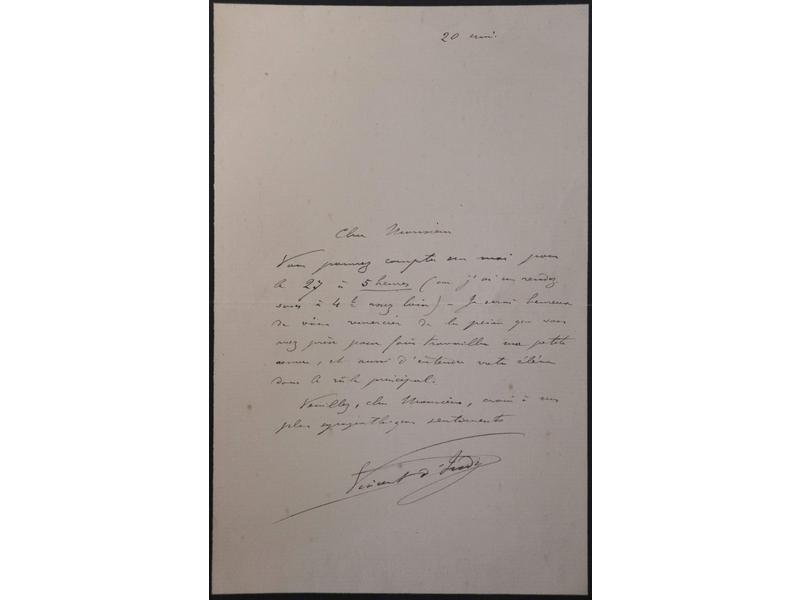 20 mai.
Cher Monsieur
Vous pouvez compter sur moi pour
le 27 à 5 heures (car j'ai un rendez
vous à 4h assez loin) – Je serai heureux
de vous remercier de la peine que vous
avez prise pour faire travailler ma petite
œuvre, et aussi d'entendre votre élève
dans le rôle principal.
Veuillez, cher Monsieur, croire à mes
plus sympathiques sentiments
Vincent d'Indy